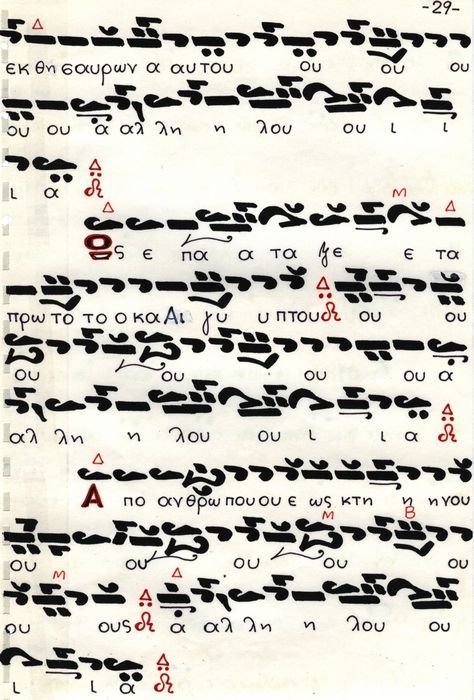 -29-
εκ θη σαυρων α αυτου ου ου ου
ου ου α αλ λη η λου ου ι ι
ι α
Ος ε πα α τα ξε ε τα
πρω το το ο κ Αι γυ υ πτου ου ου
ου ου ου ου α
αλ λη η λου ου ι ι α
Α πο ανθρω που ου ε ως κτη η η νου
ου ου ου ου
ου ους α αλ λη η λου ου
ι ι α